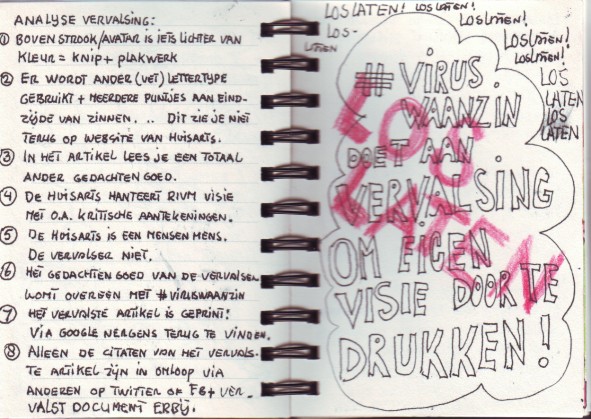 ANALYSE VERVALSING:
① BOVEN STROOK/AVATAR IS IETS LICHTER VAN
KLEUR = KNIP + PLAKWERK
② ER WORDT ANDER (VET) LETTERTYPE
GEBRUIKT + MEERDERE PUNTJES AAN EIND-
ZIJDE VAN ZINNEN. .. DIT ZIE JE NIET
TERUG OP WEBSITE VAN HUISARTS.
③ IN HET ARTIKEL LEES JE EEN TOTAAL
ANDER GEDACHTEN GOED.
④ DE HUISARTS HANTEERT RIVM VISIE
MET O.A. KRITISCHE AANTEKENINGEN.
⑤ DE HUISARTS IS EEN MENSEN MENS.
DE VERVALSER NIET.
⑥ HET GEDACHTEN GOED VAN DE VERVALSER
KOMT OVEREEN MET #VIRUSWAANZIN
⑦ HET VERVALSTE ARTIKEL IS GEPRINT!
VIA GOOGLE NERGENS TERUG TE VINDEN.
⑧ ALLEEN DE CITATEN VAN HET VERVALS-
TE ARTIKEL ZIJN IN OMLOOP VIA
ANDEREN OP TWITTER OF FB + VER-
VALST DOCUMENT ERBIJ.
LOSLATEN! LOSLATEN! LOSLATEN!
LOS-
LATEN
LOSLATEN!
LOSLATEN!
LOS
LATEN
LOS
LATEN
# VIRUS.
WAANZIN
DOET AAN
VERVALSING
OM EIGEN
VISIE DOOR TE
DRUKKEN!
LOS
LATEN